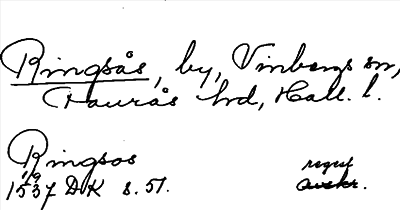 Ringsås, by, Vinbergs sn,
Faurås hd, Hall. l.
Ringsos
1/9
1537 DK s. 51.
avskr.